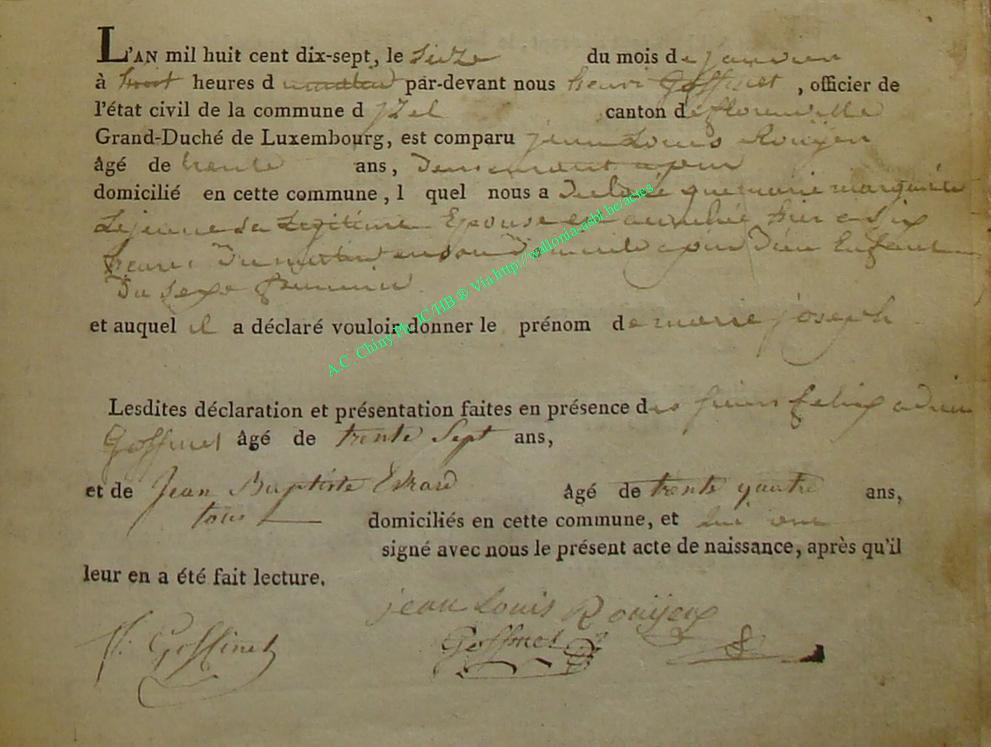 L'AN mil huit cent dix-sept, le Seize du mois de janvier
à huit heures d par-devant nous henri Goffinet, officier de
l'état civil de la commune d jzel canton de florenville
Grand-Duché de Luxembourg, est comparu jean Louis Rouyer
âgé de trente ans,
domicilié en cette commune, l quel nous a Declaré que marie marguerite
Lejeune sa Legitime Epouse est accouchée hier a six
heures Du D'un Enfant
Du Sexe feminin
et auquel il a déclaré vouloir donner le prénom de marie joseph
Lesdites déclaration et présentation faites en présence des
Goffinet âgé de trente Sept ans,
et de Jean Baptiste Evrard âgé de trente quatre ans,
tous domiciliés en cette commune, et
signé avec nous le présent acte de naissance, après qu'il
leur en a été fait lecture.
jean Louis Rouyer
Goffinet Goffinet
A.C. Chiny Ph. JC/HB ® Via http://wallonia-asbl.be/actes